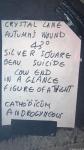 CRYSTAL LANE
AUTUMN'S WOUND
43°
SILVER SQUARE
BEAU SUICIDE
LOW END
IN A GLANCE
FIGURE OF A NIGHT
CATHOLICUM
ANDROGYNEOUS